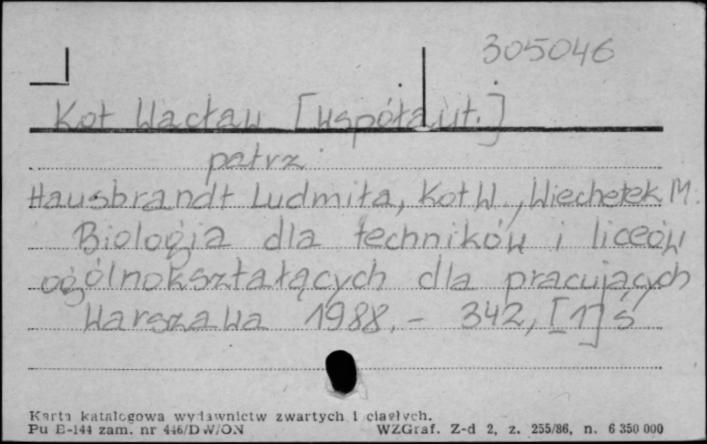 305046
Kot Wacław [współaut.]
patrz
Hausbrandt Ludmiła, Kot W., Wiechetek M.
Biologia dla techników i liceów
ogólnokształtących dla pracujących
Warszawa 1988.- 342, [1] s
Karta katalogowa wydawnictw zwartych i ciągłych.
Pu E-144 zam. nr 446/DW/ON WZGraf. Z-d 2, z. 255/86, n. 6 350 000